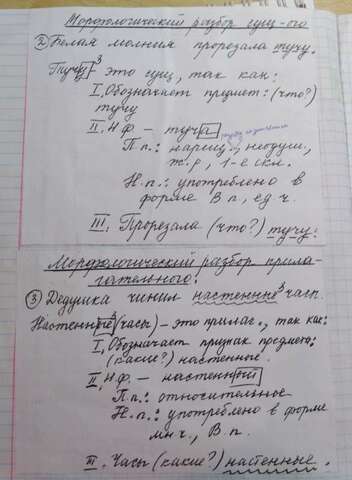 Морфологический разбор сущ-ого
② Белая молния прорезала тучу.
Тучу³ - это сущ, так как:
I. Обозначает предмет: (что?)
тучу
II. Н.ф. - туча
П.п.: нариц., неодуш,
ж.р, 1-е скл.
Н.п.: употреблено в
форме В.п., ед ч.
III. Прорезала (что?) тучу.
Морфологический разбор прила-
гательного:
③ Дедушка чинил настенные³ часы.
Настенные³ (часы) - это прилаг., так как:
I, Обозначает признак предмета:
(какие?) настенные.
II, Н.ф. - настенный
П.п.: относительное
Н.п.: употреблено в форме
мн ч., В п.
III. Часы (какие?) настенные.